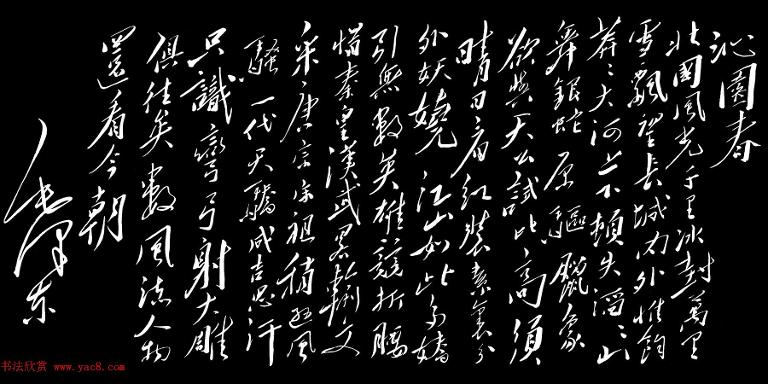 沁園春
北國風光千里冰封萬里
雪飄望長城內外惟餘
莽々大河上下頓失滔々山
舞銀蛇原驅臘象
欲與天公試比高須
晴日看紅裝素裹分
外妖嬈江山如此多嬌
引無數英雄競折腰
惜秦皇漢武略輸文
采唐宗宋祖稍遜風
騷一代天驕成吉思汗
只識彎弓射大雕
俱往矣數風流人物
還看今朝
毛澤東
书法欣赏 www.yac8.com